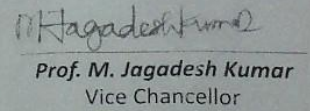 MJagadeshKumar
Prof. M. Jagadesh Kumar
Vice Chancellor